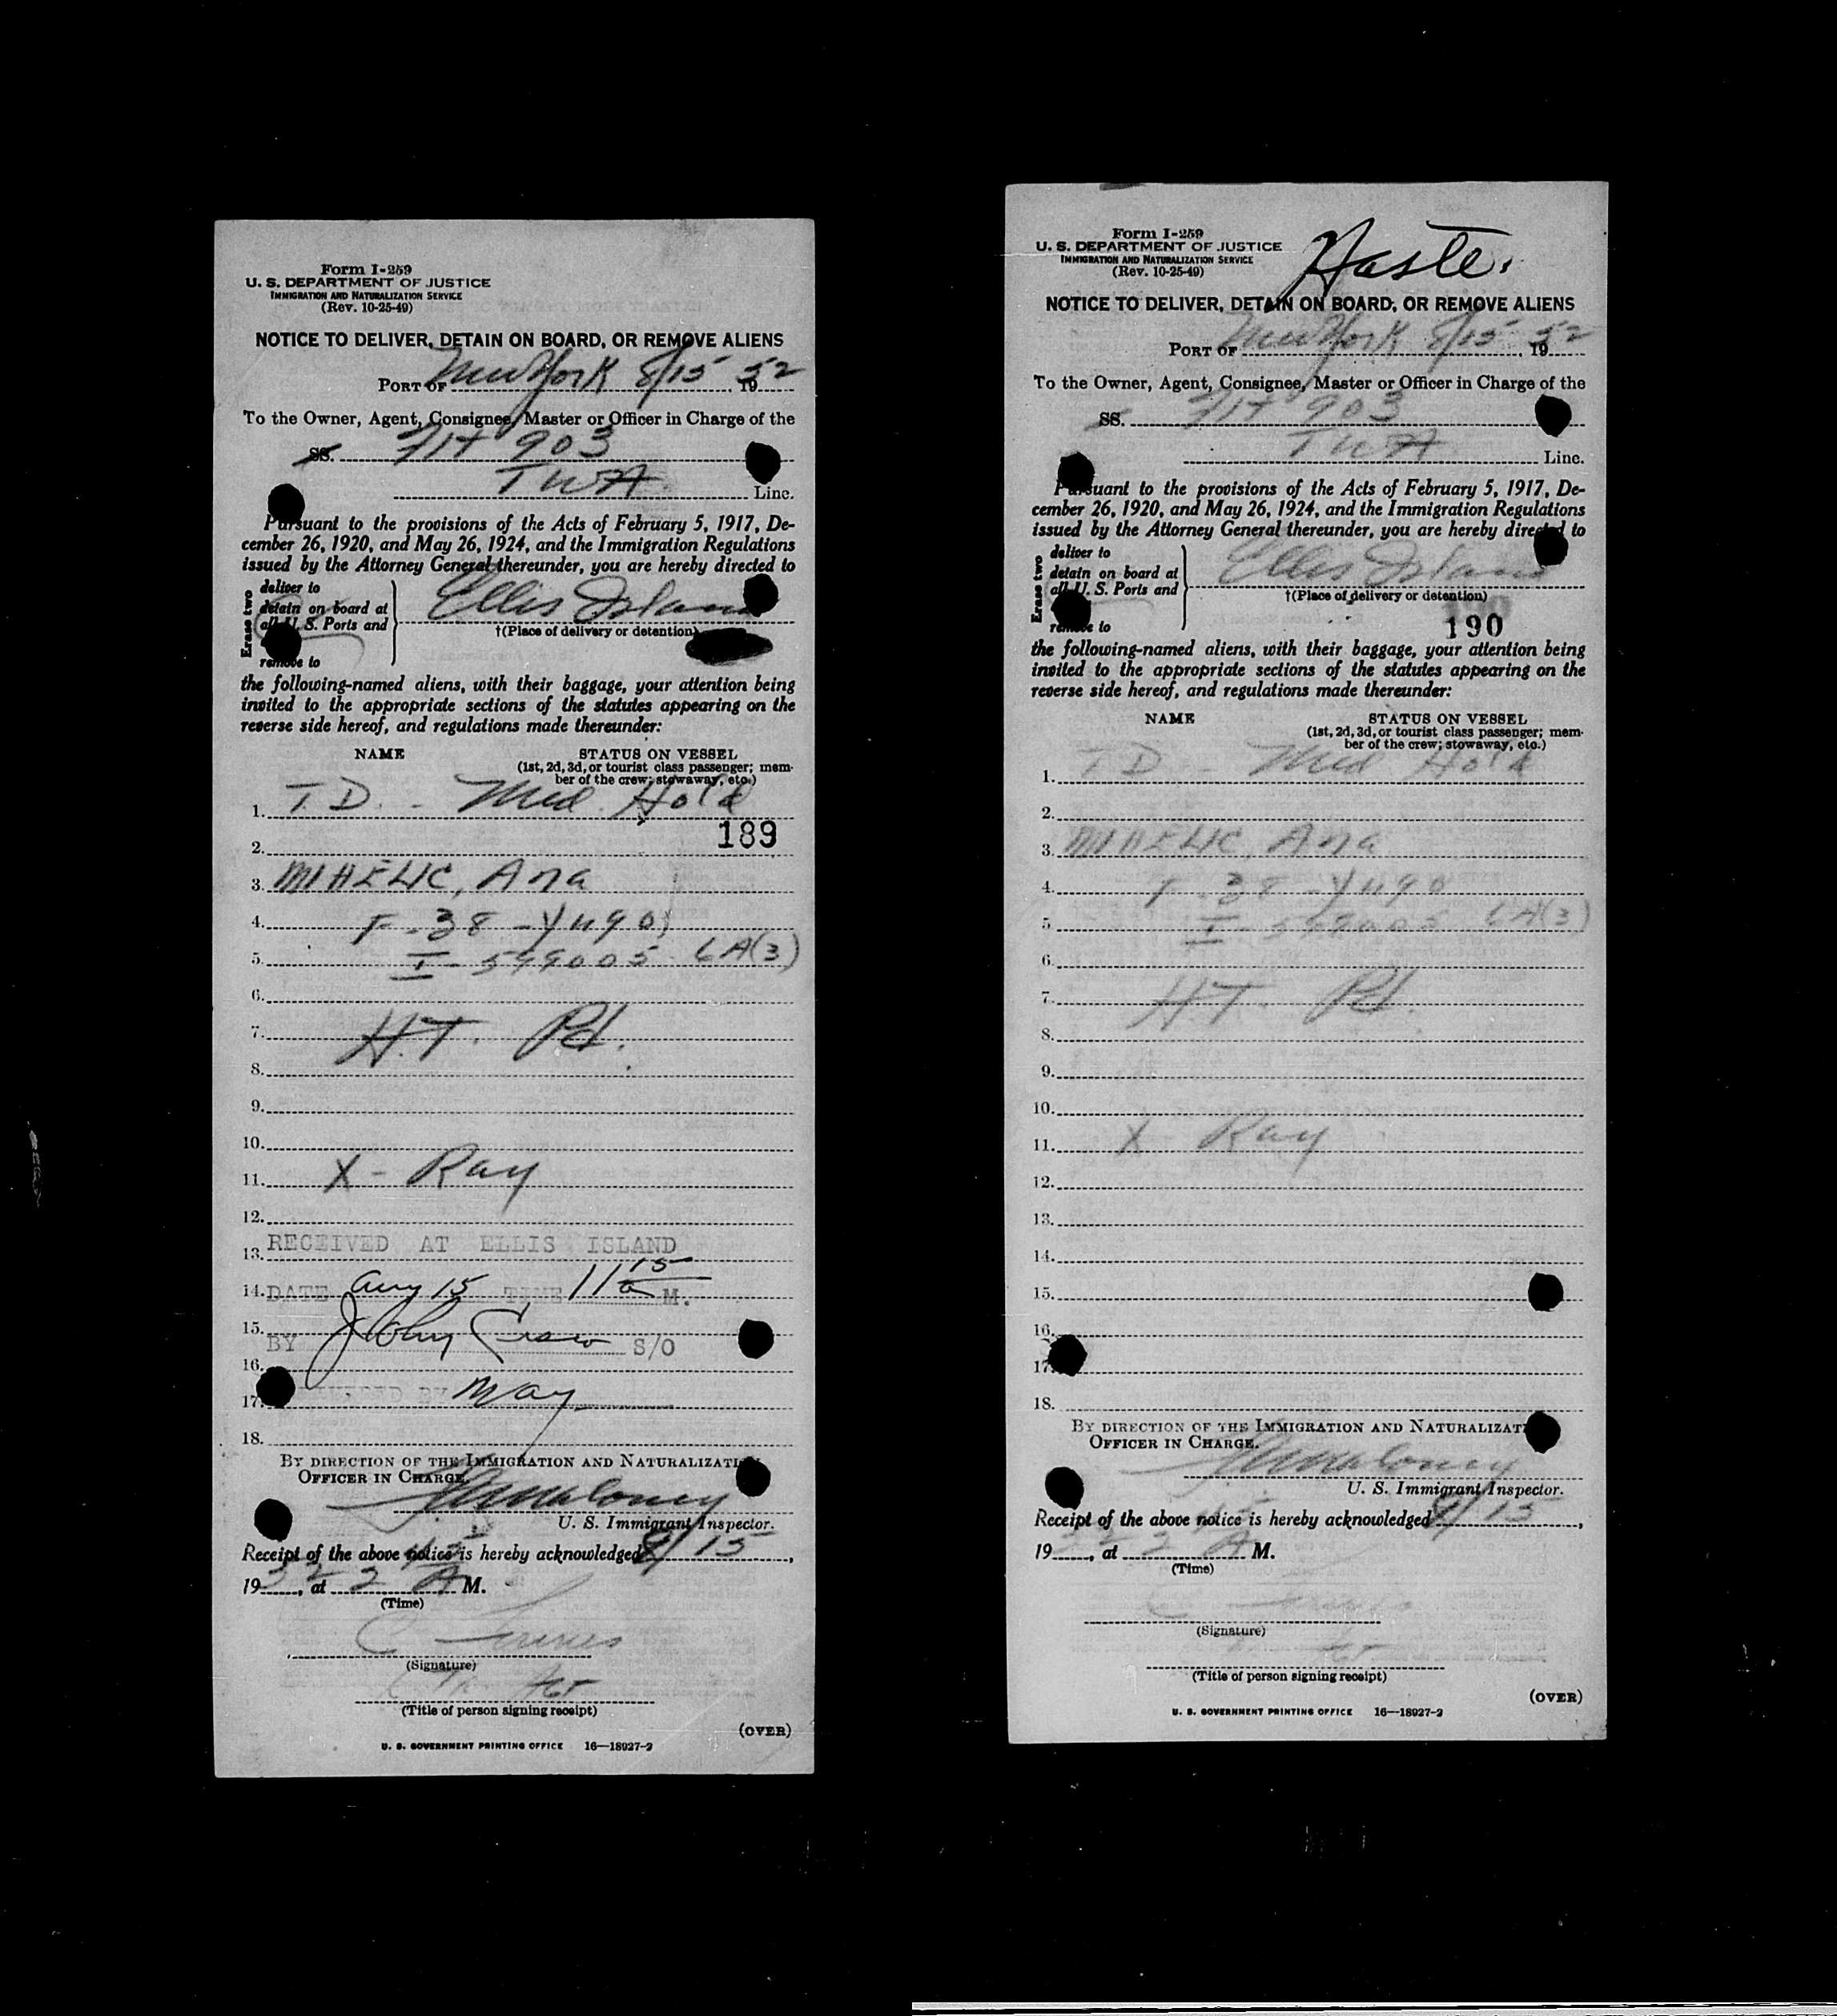 Form I-259
U. S. DEPARTMENT OF JUSTICE
IMMIGRATION AND NATURALIZATION SERVICE
(Rev. 10-25-49)
NOTICE TO DELIVER, DETAIN ON BOARD, OR REMOVE ALIENS
PORT OF New York 8/15 1952
To the Owner, Agent, Consignee, Master or Officer in Charge of the
SS. Flt 903
TWA Line.
Pursuant to the provisions of the Acts of February 5, 1917, De-
cember 26, 1920, and May 26, 1924, and the Immigration Regulations
issued by the Attorney General thereunder, you are hereby directed to
Erase two
deliver to
detain on board at
all U. S. Ports and
remove to
Ellis Island
†(Place of delivery or detention)
the following-named aliens, with their baggage, your attention being
invited to the appropriate sections of the statutes appearing on the
reverse side hereof, and regulations made thereunder:
NAME STATUS ON VESSEL
(1st, 2d, 3d, or tourist class passenger; mem-
ber of the crew; stowaway, etc.)
1. T.D. - Med. Hold
189
2.
3. Ana
4. F - 38 - Yugo
5. I - 599005 6A(3)
6.
7. H.T. Pd.
8.
9.
10.
11. X - Ray
12.
13. RECEIVED AT ELLIS ISLAND
14. DATE Aug 15 TIME 11 15 a M.
15.
BY S/O
16.
17. BY May
18.
BY DIRECTION OF THE IMMIGRATION AND NATURALIZATI
OFFICER IN CHARGE.
Maloney
U. S. Immigrant Inspector.
Receipt of the above notice is hereby acknowledged 8/15,
1952, at 2 45 A M.
(Time)
C
(Signature)
Agt
(Title of person signing receipt)
(OVER)
U. S. GOVERNMENT PRINTING OFFICE 16—18927-2
Form I-259
U. S. DEPARTMENT OF JUSTICE
IMMIGRATION AND NATURALIZATION SERVICE
(Rev. 10-25-49)
Haste.
NOTICE TO DELIVER, DETAIN ON BOARD, OR REMOVE ALIENS
PORT OF New York 8/15 1952
To the Owner, Agent, Consignee, Master or Officer in Charge of the
SS. Flt 903
TWA Line.
Pursuant to the provisions of the Acts of February 5, 1917, De-
cember 26, 1920, and May 26, 1924, and the Immigration Regulations
issued by the Attorney General thereunder, you are hereby directed to
Erase two
deliver to
detain on board at
all U. S. Ports and
remove to
Ellis Island
†(Place of delivery or detention)
190
the following-named aliens, with their baggage, your attention being
invited to the appropriate sections of the statutes appearing on the
reverse side hereof, and regulations made thereunder:
NAME STATUS ON VESSEL
(1st, 2d, 3d, or tourist class passenger; mem-
ber of the crew; stowaway, etc.)
1. T D - Med Hold
2.
3. Ana
4. F - 38 - Yugo
5. I - 599005 6A(3)
6.
7. H T. Pd.
8.
9.
10.
11. X Ray
12.
13.
14.
15.
16.
17.
18.
BY DIRECTION OF THE IMMIGRATION AND NATURALIZAT
OFFICER IN CHARGE.
Maloney
U. S. Immigrant Inspector.
Receipt of the above notice is hereby acknowledged 8/15,
1952, at 2 A M.
(Time)
C
(Signature)
(Title of person signing receipt)
(OVER)
U. S. GOVERNMENT PRINTING OFFICE 16—18927-2